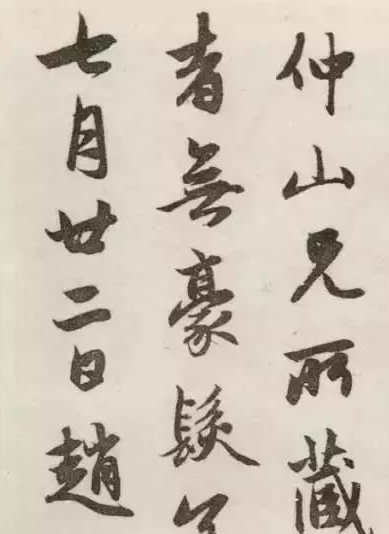 仲山兄所藏
者無豪髮
七月廿二日趙